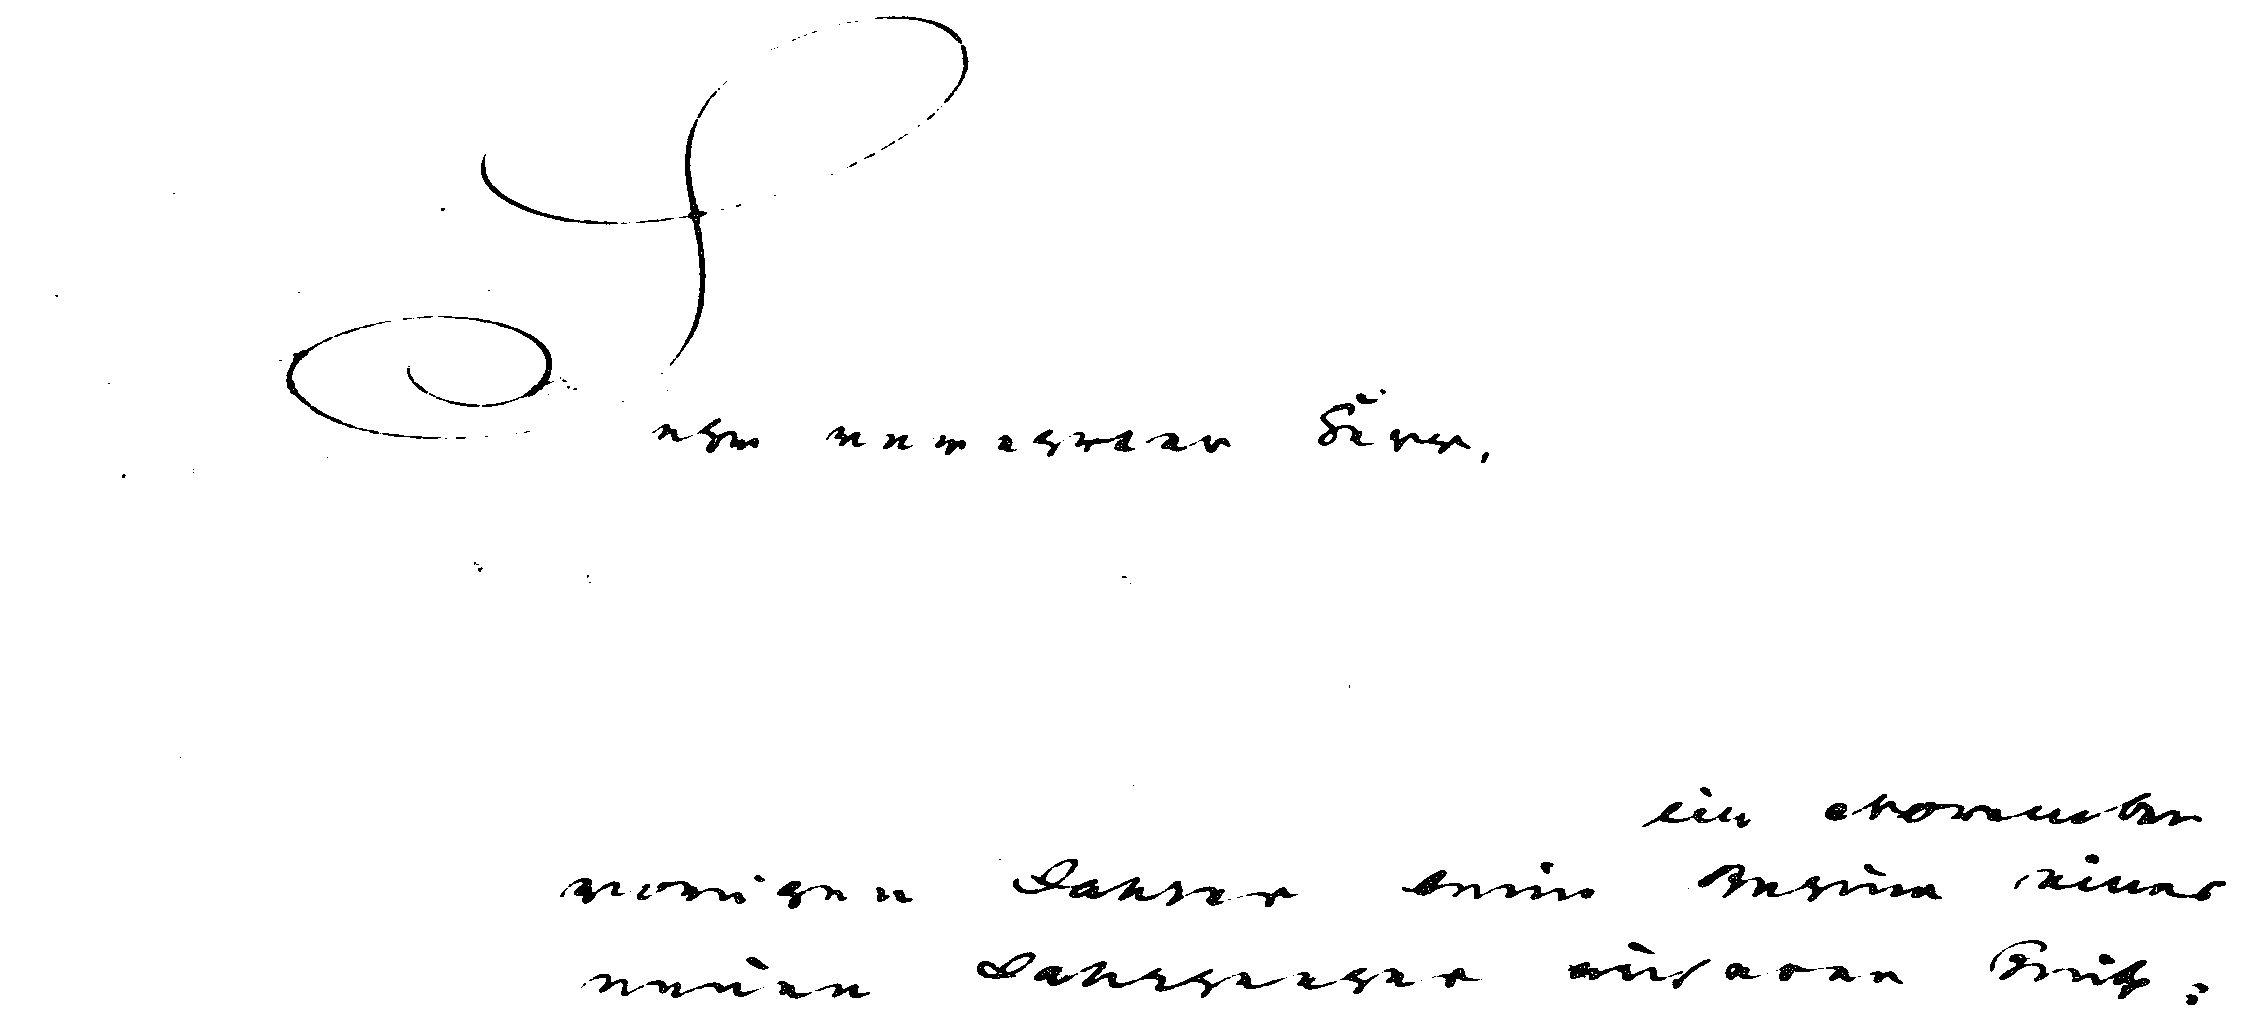 Sehr verehrter Herr,
im November
vorigen Jahres beim Beginn eines
neuen Jahrganges unserer